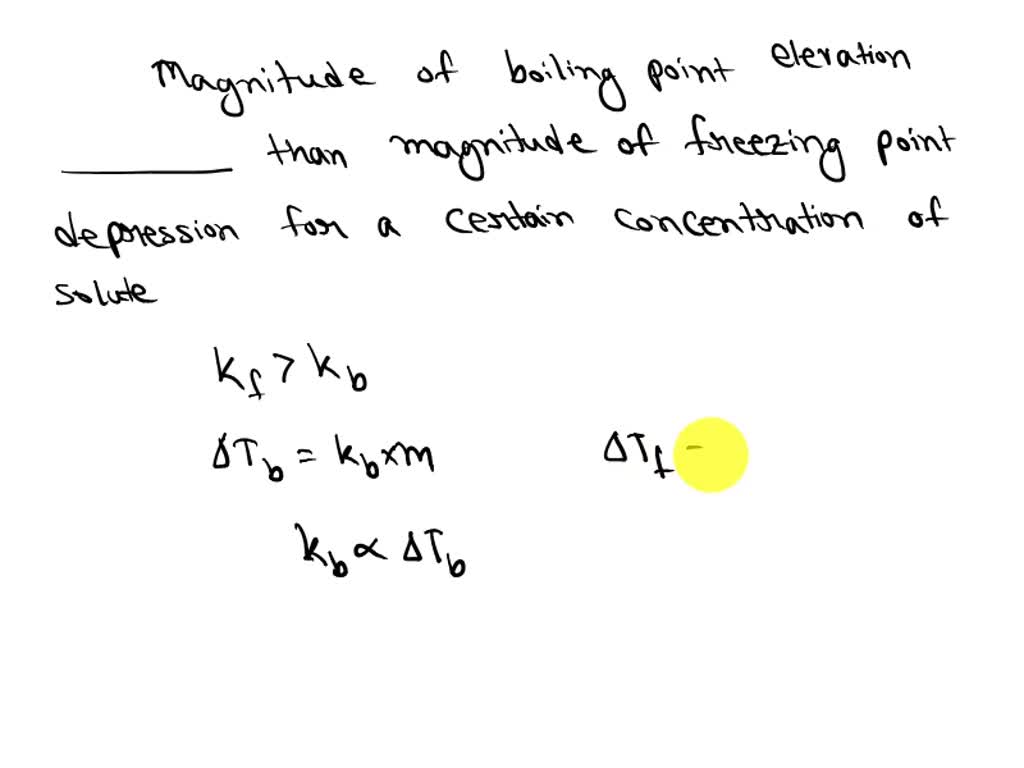 Magnitude of boiling point elevation
________ than magnitude of freezing point
depression for a certain concentration of
solute
Kf > Kb
ΔTb = Kb×m ΔTf =
Kb ∝ ΔTb